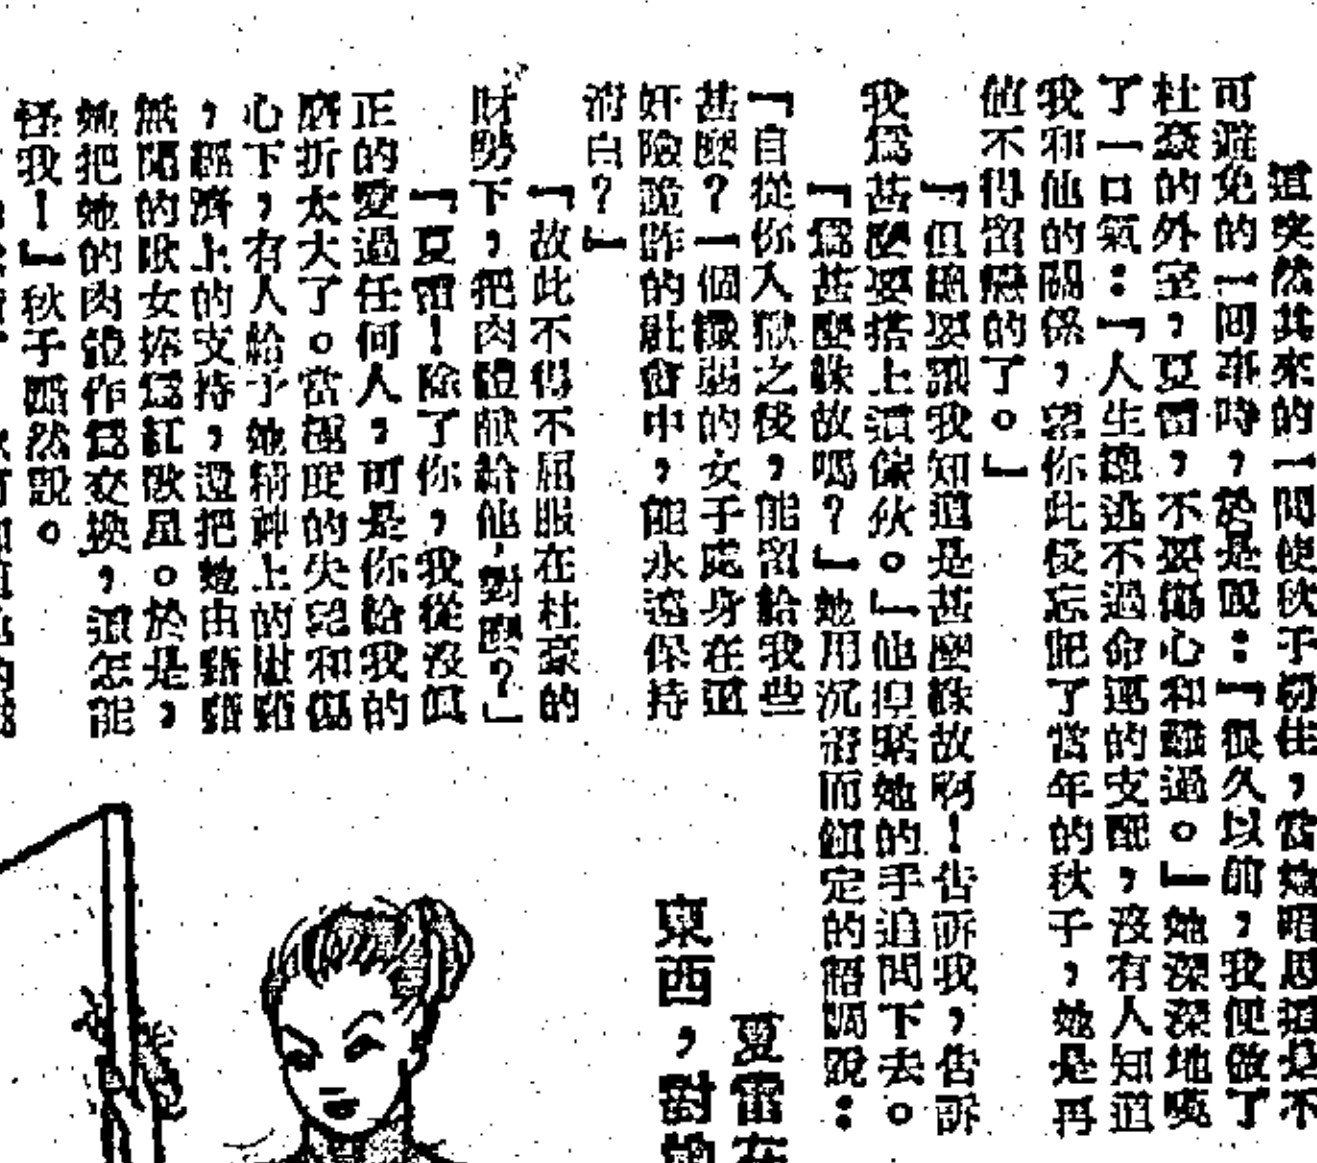 這突然其來的一問使秋子粉住,當她暗思這是不
可避免的一回事時,於是說:「很久以前,我便做了
杜豪的外室,夏雷,不要傷心和難過。」她深深地嘆
了一口氣:「人生總逃不過命運的支配,沒有人知道
我和他的關係,望你此後忘記了當年的秋子,她是再
值不得留戀的了。」
「但總要讓我知道是甚麼緣故啊!告訴我,告訴
我爲甚麼要搭上這傢伙。」他捏緊她的手追問下去。
「爲甚麼緣故嗎?」她用沉着而鎮定的語調說:
「自從你入獄之後,能留給我些
甚麼?一個纖弱的女子處身在這
奸險詭詐的社會中,能永遠保持
清白?」
「故此不得不屈服在杜豪的
財勢下,把肉體獻給他,對麼?」
「夏雷!除了你,我從沒眞
正的愛過任何人,可是你給我的
磨折太大了。當極度的失望和傷
心下,有人給予她精神上的慰藉
,經濟上的支持,還把她由藉藉
無聞的歌女捧爲紅歌星。於是,
她把她的肉體作爲交換,這怎能
怪我!」秋子黯然說。
夏雷在
東西,對她